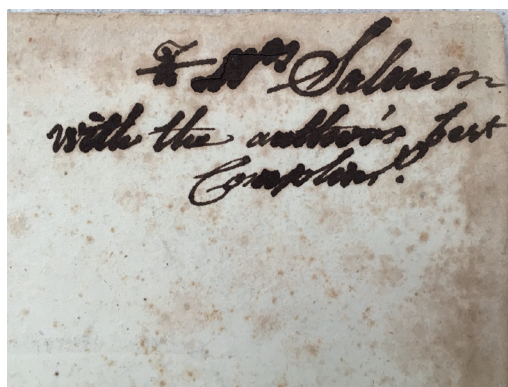 To Mrs Salmon
with the author's best
Complimts